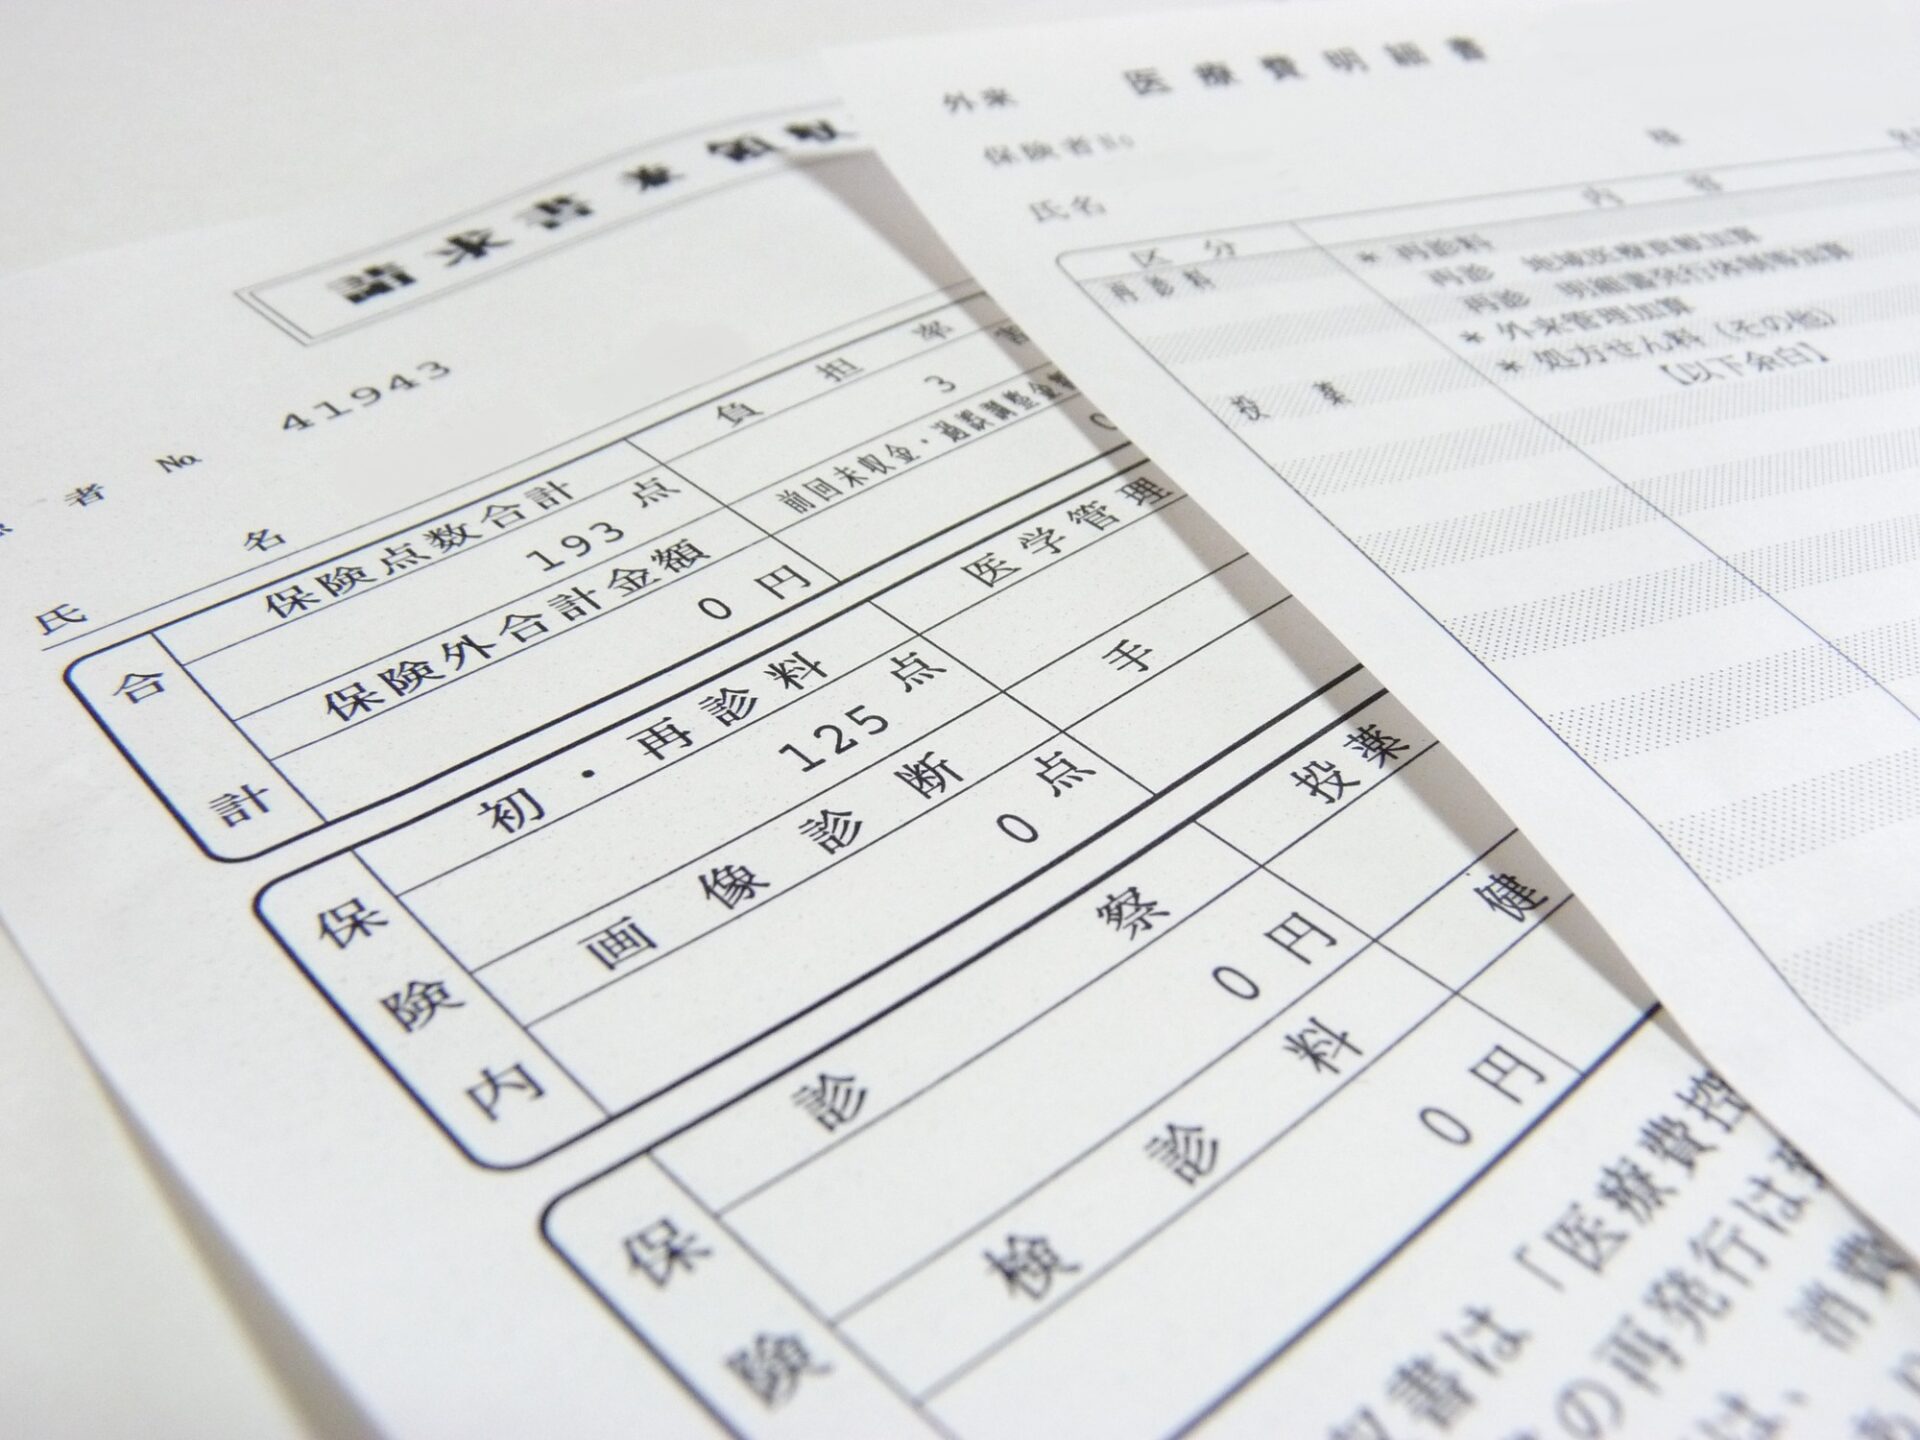 請求書兼領収
者 No. 41943
氏 名
合計
保険点数合計
193 点
保険外合計金額
0 円
負担率
3 割
前回未収金・過誤調整金
0
保険内
初・再診料
125 点
医学管理
画像診断
0 点
手
保険
診察
0 円
投薬
検診料
0 円
健
収書は「医療費控
の再発行は
は、消費
外来 医療費明細書
保険者No
氏名
様
区分 内容
再診料 * 再診料
再診 地域医療貢献加算
再診 明細書発行体制等加算
* 外来管理加算
投薬 * 処方せん料(その他)
【以下余白】